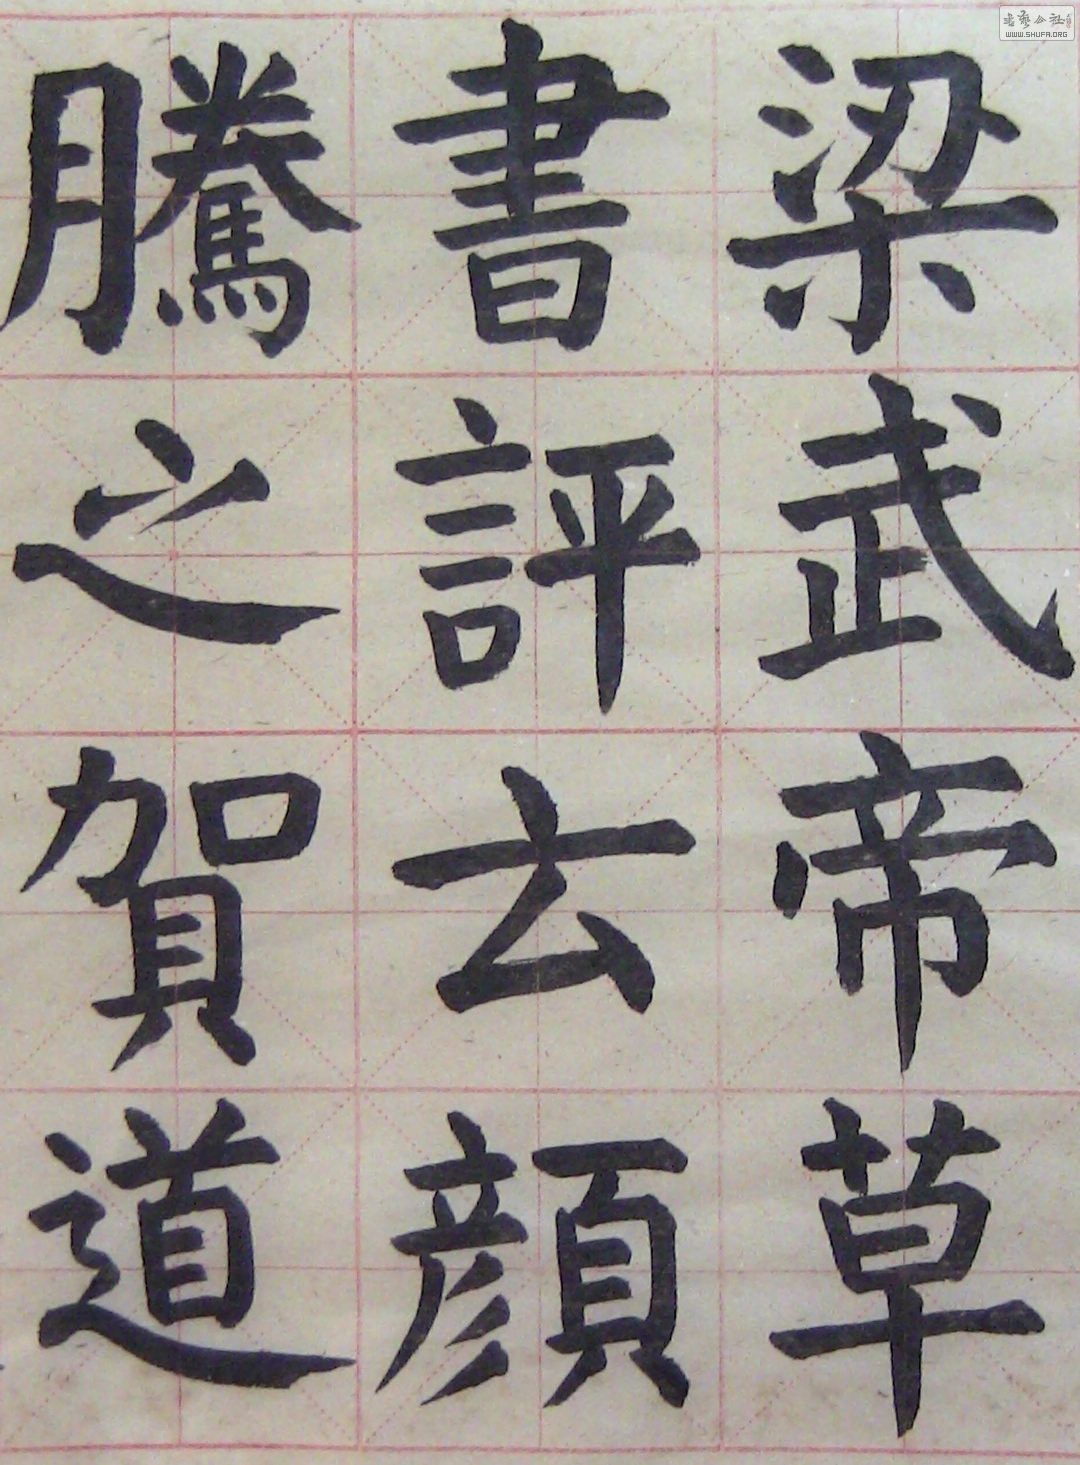 梁武帝草
書評云顏
騰之賀道
書藝公社
WWW.SHUFA.ORG